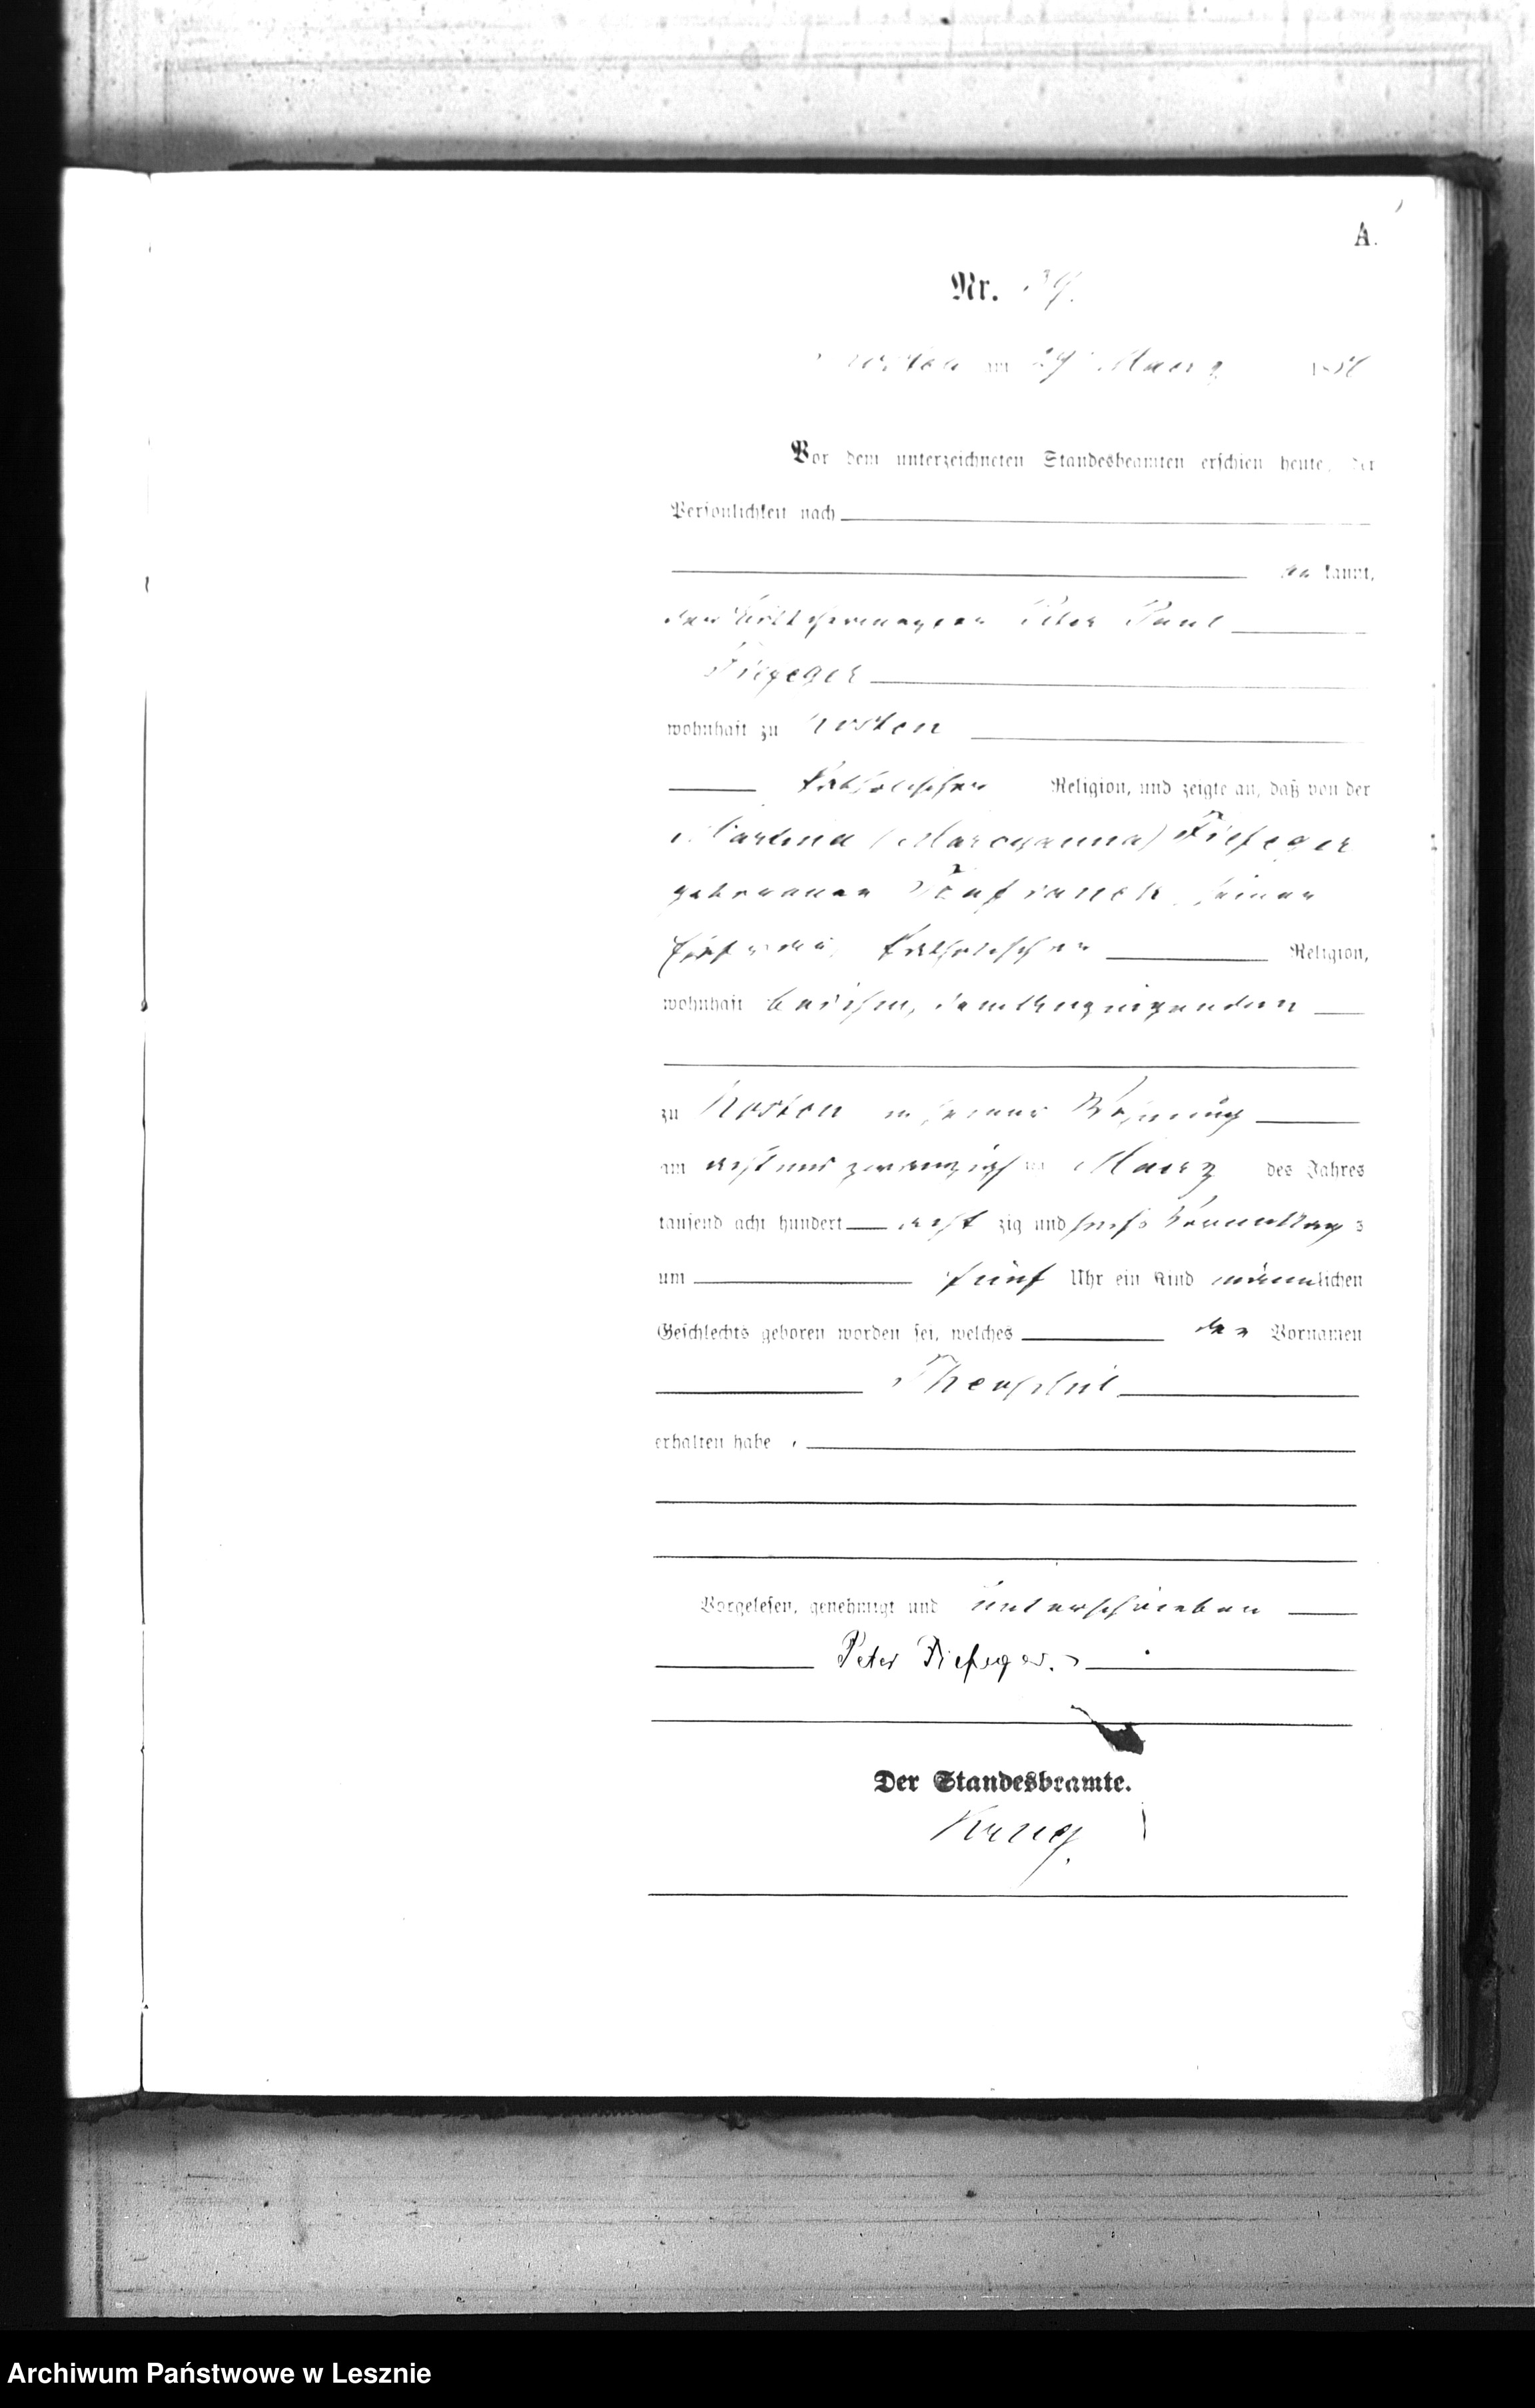 A.
Nr. 39.
Kosten am 29 Maerz 1886
Vor dem unterzeichneten Standesbeamten erschien heute, der
Persönlichkeit nach
be kannt,
der Böttchermeister Peter Paul
Fiefeger
wohnhaft zu Kosten
katholischer Religion, und zeigte an, daß von der
Martina (Maryanna) Fiefeger
geborenen seiner
Ehefrau, katholischer Religion,
wohnhaft bei ihm,
zu Kosten in seiner Wohnung
am acht und zwanzigsten Maerz des Jahres
tausend acht hundert acht zig und sechs Vormittags
um fünf Uhr ein Kind männlichen
Geschlechts geboren worden sei, welches den Vornamen
Theophil
erhalten habe.
Vorgelesen, genehmigt und unterschrieben
Peter Fiefeger.
Der Standesbeamte.
Krug.
Archiwum Państwowe w Lesznie